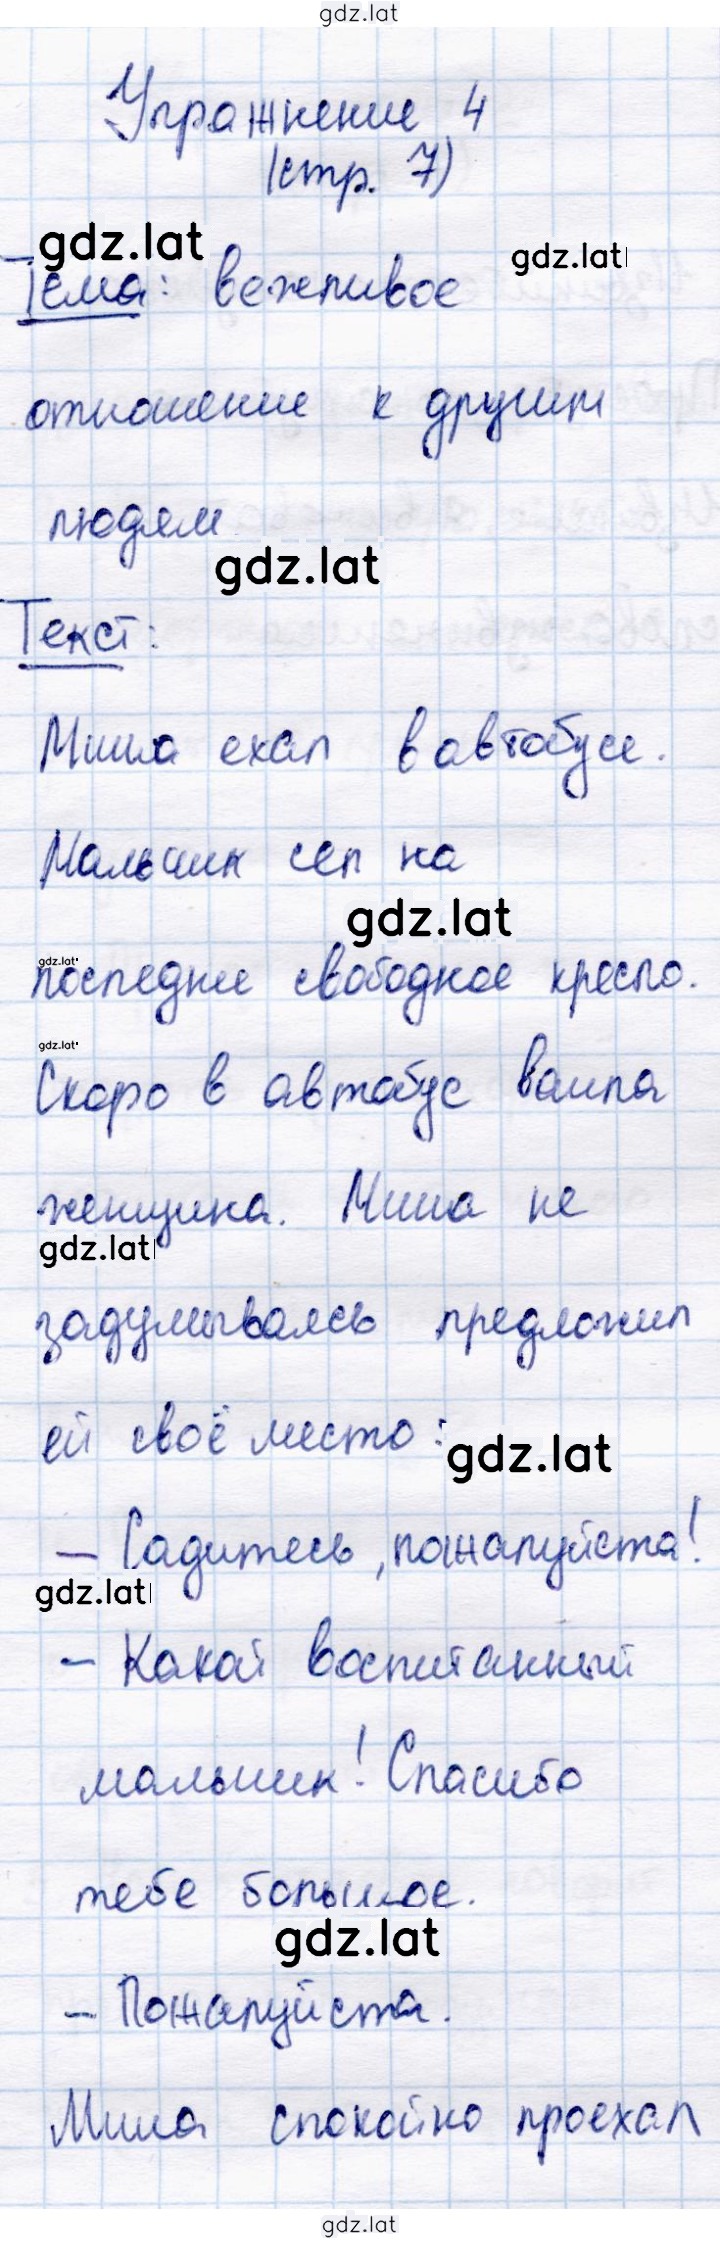 gdz.lat
Упражнение 4
(стр. 7)
gdz.lat
gdz.lat
Тема: вежливое
отношение к другим
людям
gdz.lat
Текст:
Миша ехал в автобусе.
Мальчик сел на
gdz.lat
gdz.lat
последнее свободное кресло.
gdz.lat
Скоро в автобус вошла
женщина. Миша не
gdz.lat
задумываясь предложил
ей своё место:
gdz.lat
– Садитесь, пожалуйста!
gdz.lat
– Какой воспитанный
мальчик! Спасибо
тебе большое.
gdz.lat
– Пожалуйста.
Миша спокойно проехал
gdz.lat